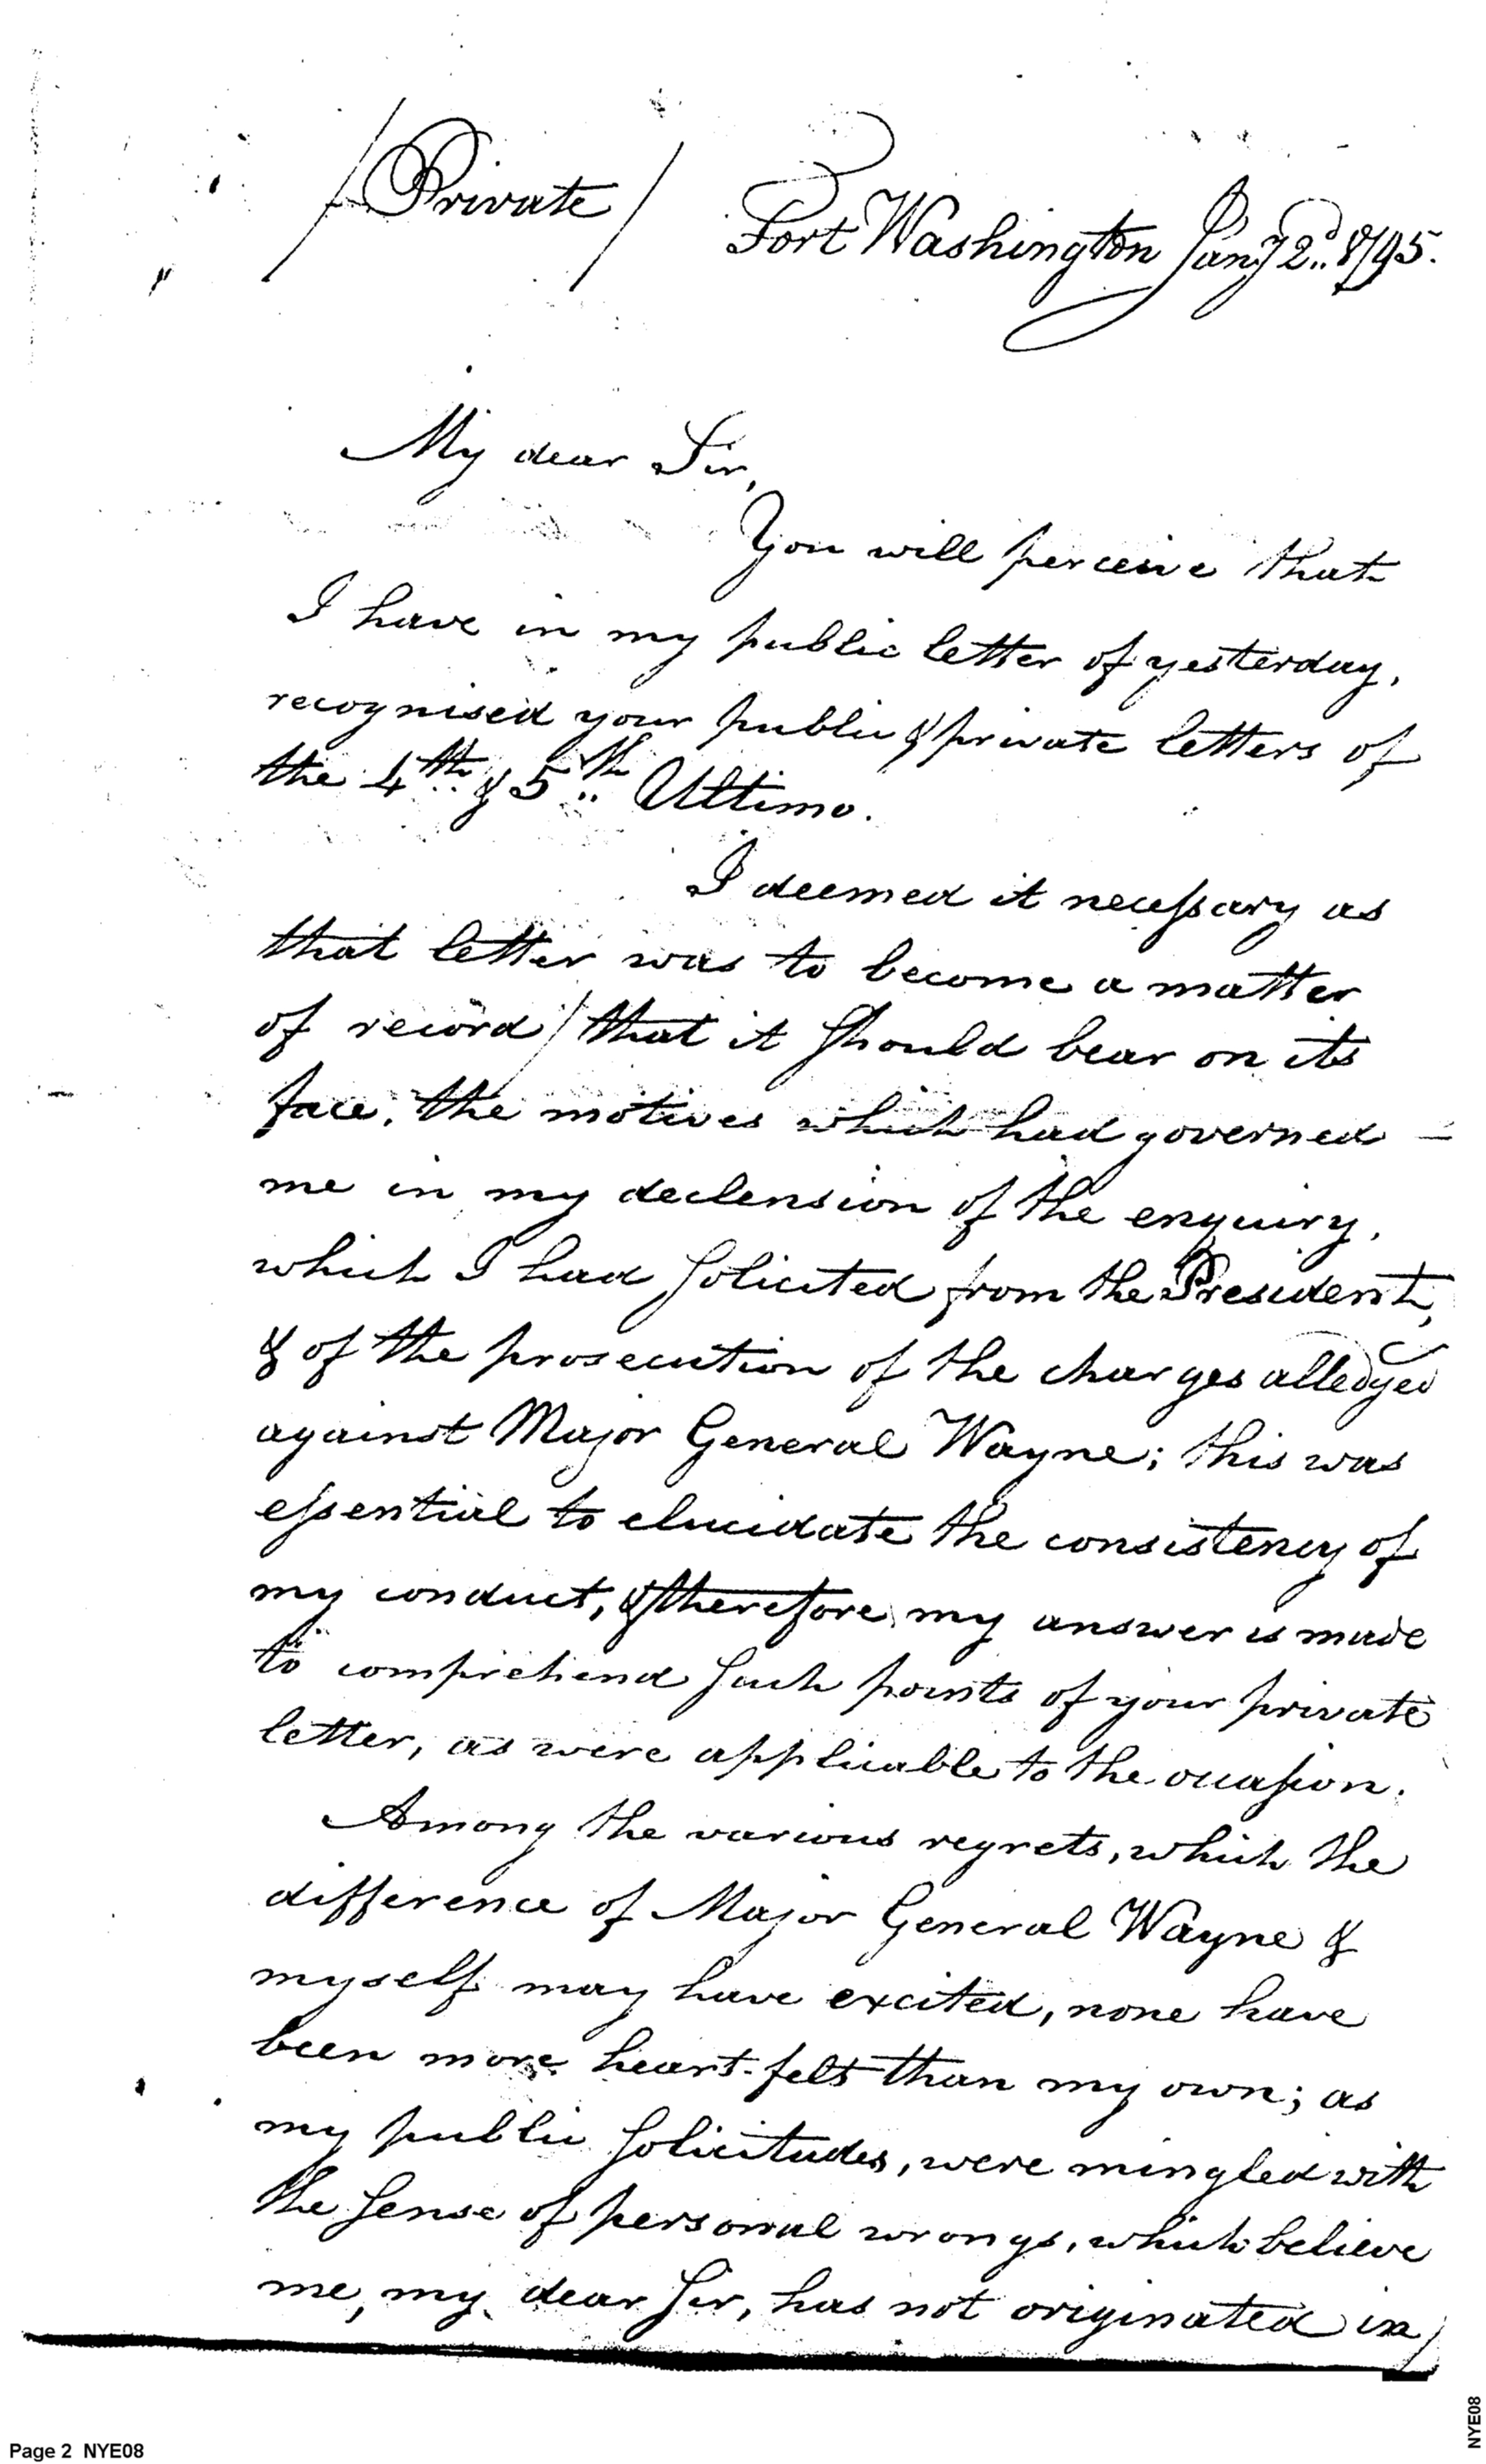 /Private/
Fort Washington Jany 2d. 1795.
My dear Sir,
You will perceive that
I have in my public letter of yesterday,
recognised your public & private letters of
the 4th. & 5th. Ultimo.
I deemed it necessary as
that letter was to become a matter
of record / that it should bear on its
face, the motives which had governed
me in my declension of the enquiry,
which I had solicited from the President,
& of the prosecution of the charges alledged
against Major General Wayne; this was
essential to elucidate the consistency of
my conduct, & therefore my answer is made
to comprehend such points of your private
letter, as were applicable to the occasion.
Among the various regrets, which the
difference of Major General Wayne &
myself may have excited, none have
been more heart-felt than my own; as
my public solicitudes, were mingled with
the sense of personal wrongs, which believe
me, my dear Sir, has not originated in
Page 2 NYE08
NYE08